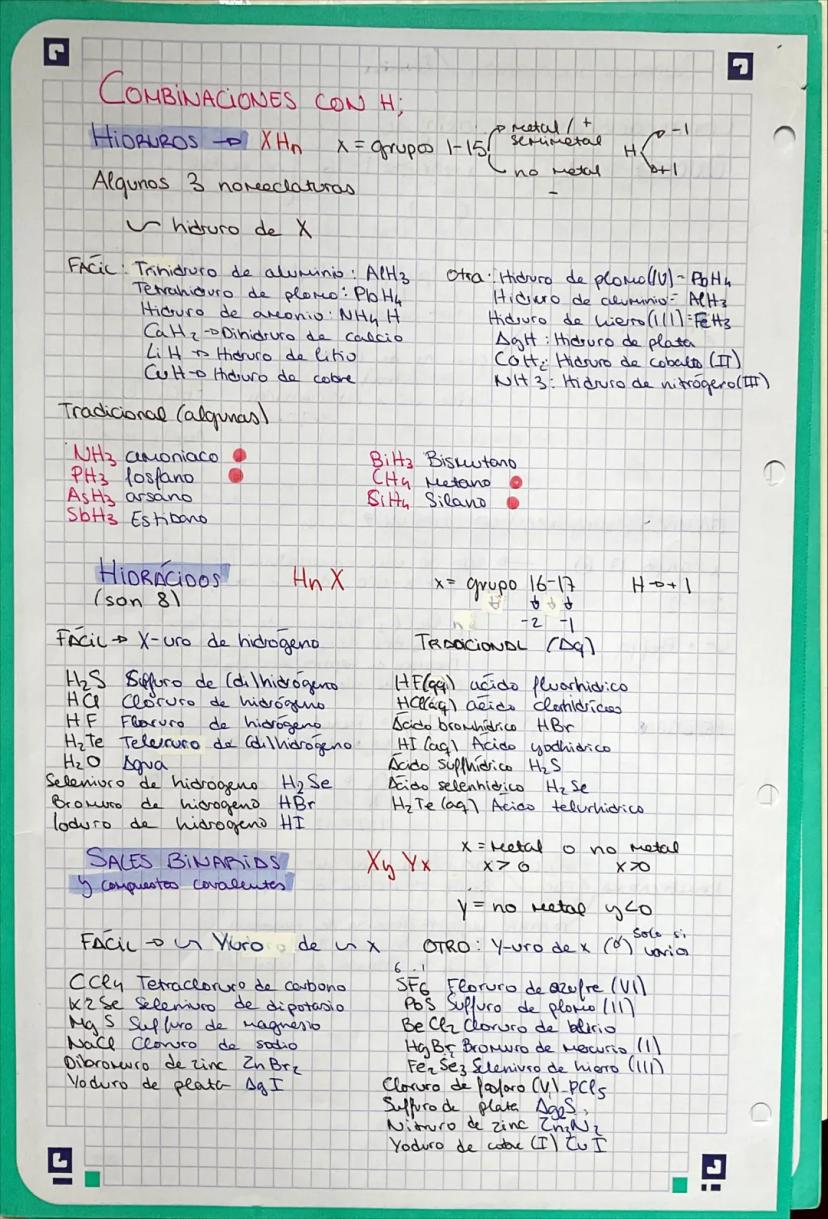 COMBINACIONES CON H;
HIDRUROS → XHn x = grupos 1-15 metal / + semimetal no metal - H -1 +1
Algunos 3 nomeclaturas
hidruro de X
FÁCIL: Trihidruro de aluminio: AlH3
Tetrahidruro de plomo: PbH4
Hidruro de amonio: NH4 H
CaH2 → Dihidruro de calcio
LiH → Hidruro de litio
CuH → Hidruro de cobre
Otra: Hidruro de plomo (IV) - PbH4
Hidruro de aluminio = AlH3
Hidruro de hierro (III) = FeH3
AgH: Hidruro de plata
CoH2: Hidruro de cobalto (II)
NH3: Hidruro de nitrógeno (III)
Tradicional (algunas)
NH3 amoniaco
PH3 fosfano
AsH3 arsano
SbH3 Estibano
BiH3 Bismutano
CH4 Metano
SiH4 Silano
HIDRÁCIDOS HnX x = grupo 16-17 H → +1
(son 8) -2 -1
FÁCIL → X-uro de hidrógeno
H2S Sulfuro de (di)hidrógeno
HCl Cloruro de hidrógeno
HF Floruro de hidrógeno
H2Te Teleruro de (di)hidrógeno
H2O Agua
Seleniuro de hidrogeno H2Se
Bromuro de hidrogeno HBr
Ioduro de hidrogeno HI
TRADICIONAL (Aq)
HF(aq) ácido fluorhídrico
HCl(aq) ácido clorhídrico
Ácido bromhídrico HBr
HI (aq) Ácido yodhídrico
Ácido sulfhídrico H2S
Ácido selenhídrico H2Se
H2Te (aq) Ácido telurhídrico
SALES BINARIAS XyYx x = metal o no metal
y compuestos covalentes x>0 x>0
y = no metal y<0
FÁCIL → Yuro de x
CCl4 Tetracloruro de carbono
K2Se Seleniuro de dipotasio
MgS Sulfuro de magnesio
NaCl Cloruro de sodio
Dibromuro de zinc ZnBr2
Yoduro de plata AgI
OTRO: Y-uro de x ( ) Solo si varios
6 -1
SF6 Floruro de azufre (VI)
PbS Sulfuro de plomo (II)
BeCl2 Cloruro de berilio
HgBr Bromuro de mercurio (I)
Fe2Se3 Seleniuro de hierro (III)
Cloruro de fosforo (V) - PCl5
Sulfuro de plata Ag2S
Nitruro de zinc Zn3N2
Yoduro de cobre (I) CuI